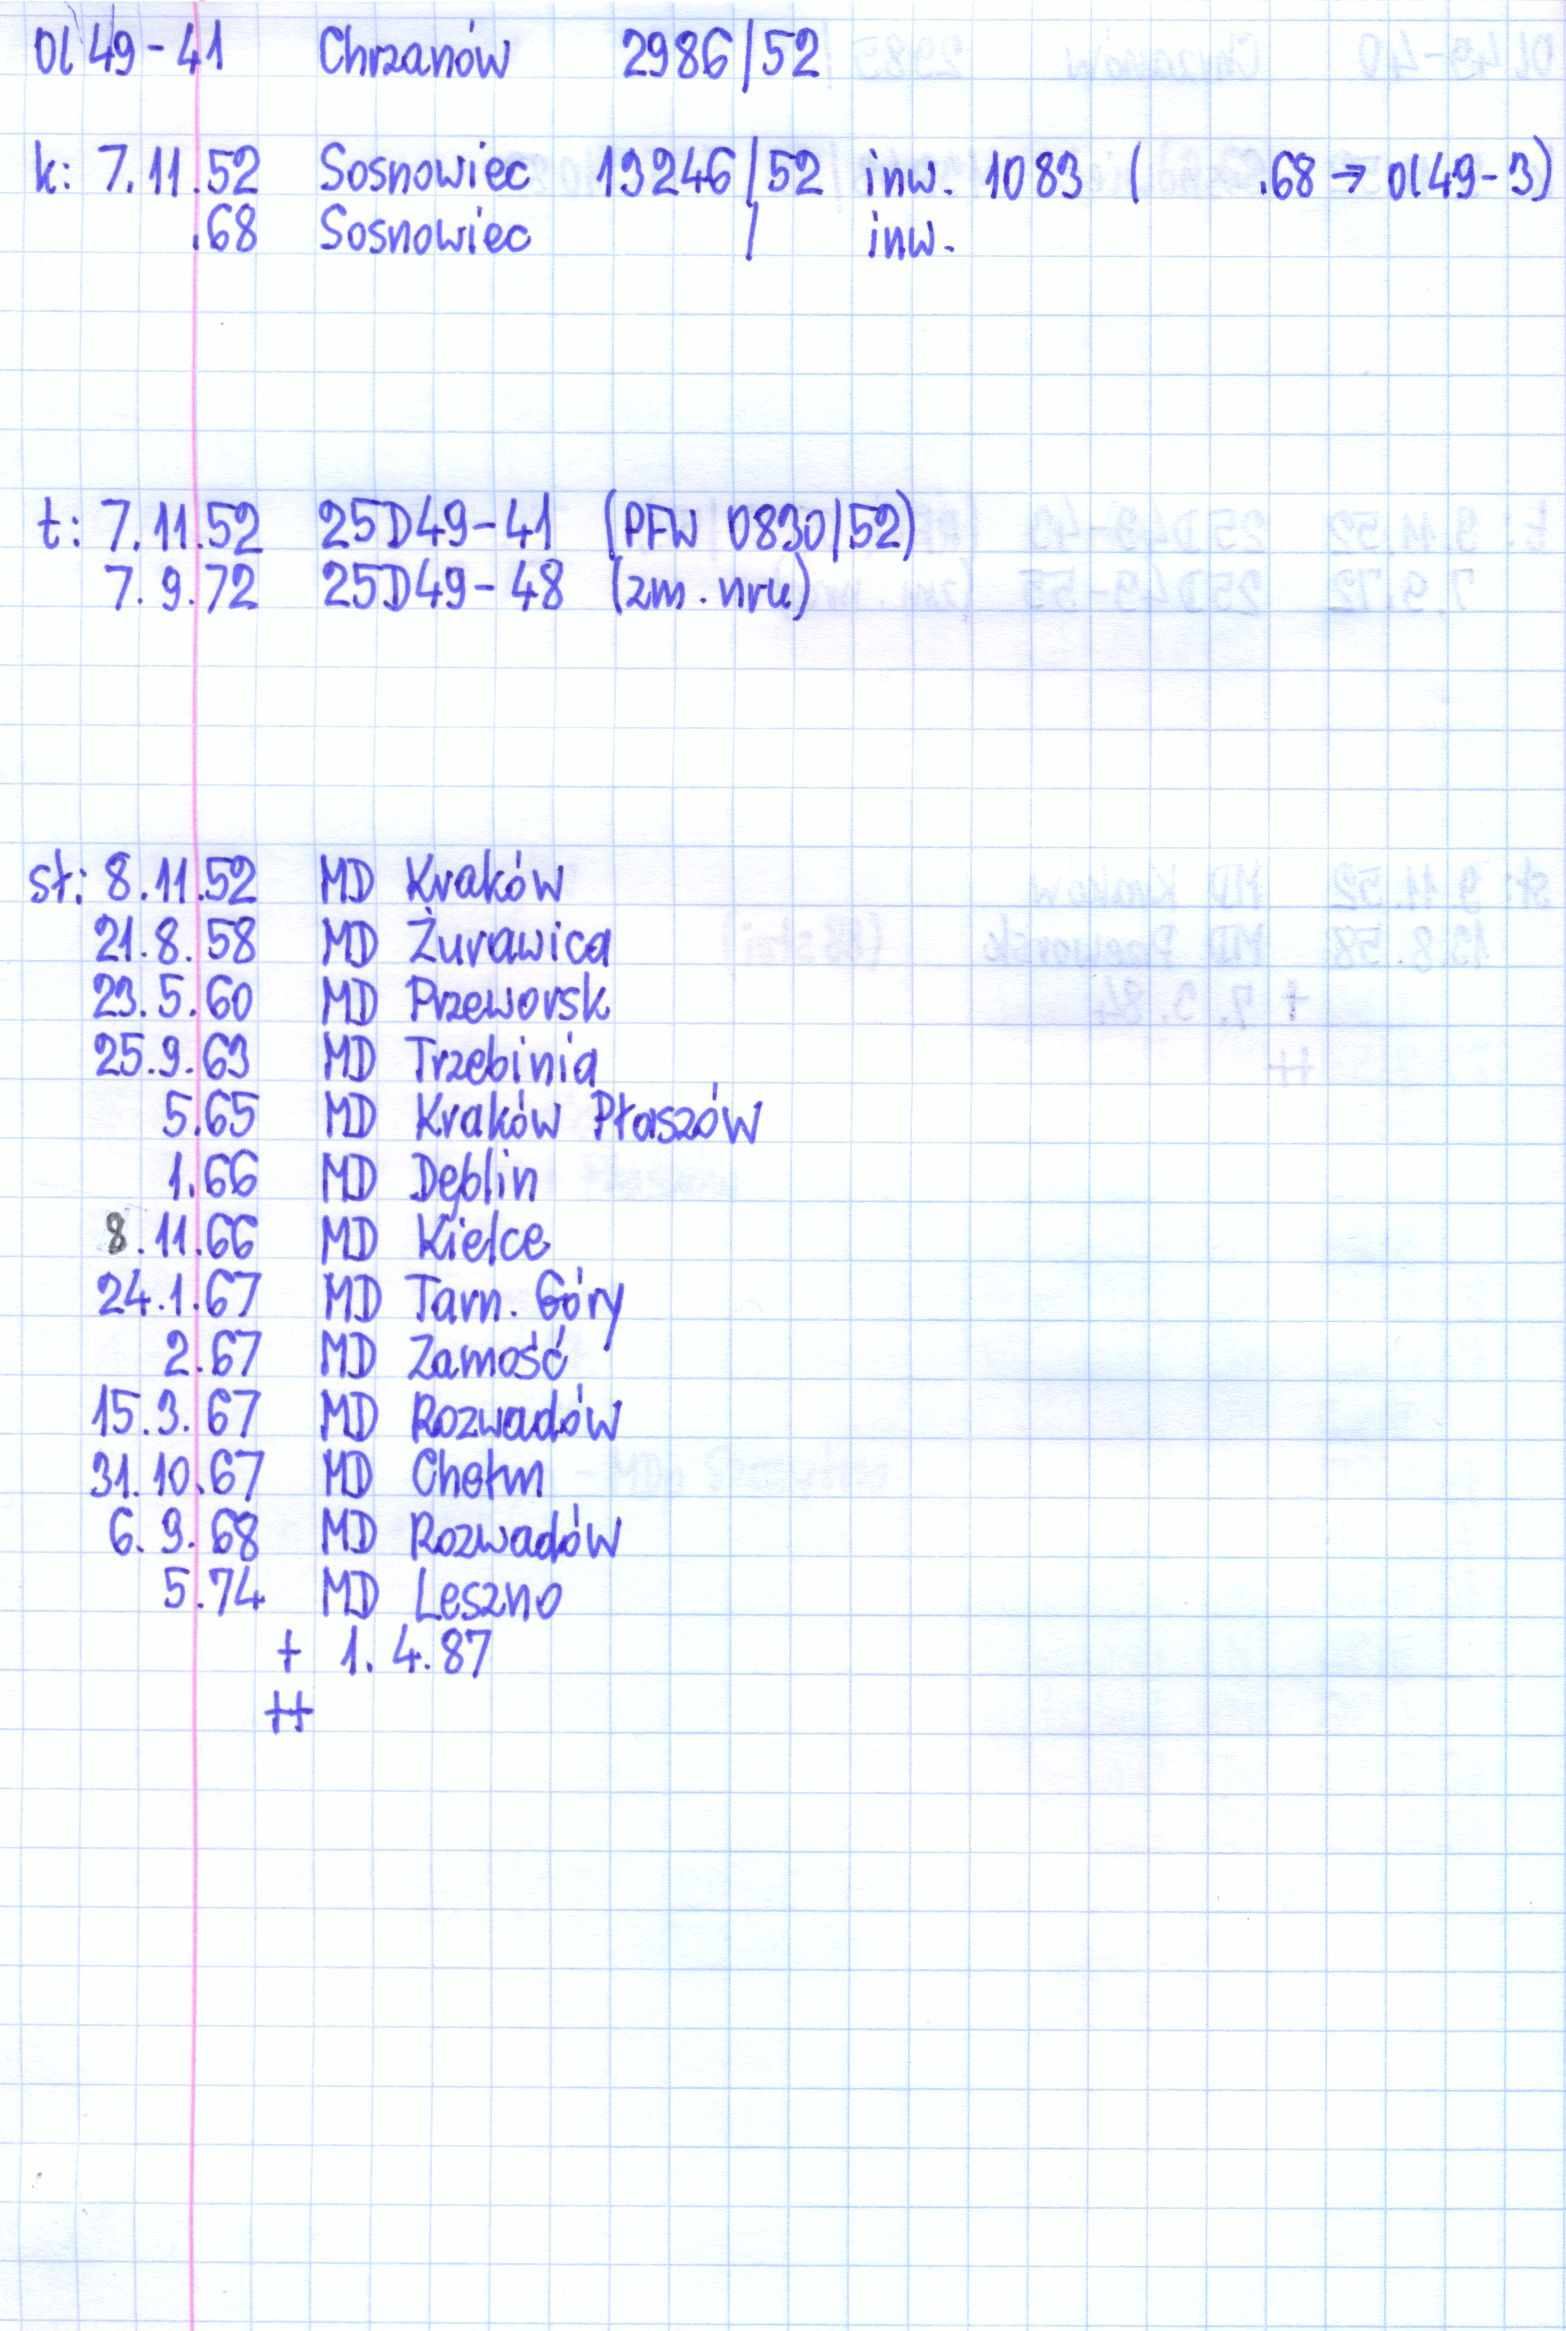 Ol 49-41 Chrzanów 2986/52
k: 7.11.52 Sosnowiec 13246/52 inw. 1083 ( .68 → Ol49-3)
.68 Sosnowiec / inw.
t: 7.11.52 25D49-41 (PFW 0830/52)
7.9.72 25D49-48 (zm. nru)
st: 8.11.52 MD Kraków
21.8.58 MD Żurawica
23.5.60 MD Przeworsk
25.9.63 MD Trzebinia
5.65 MD Kraków Płaszów
1.66 MD Dęblin
8.11.66 MD Kielce
24.1.67 MD Tarn. Góry
2.67 MD Zamość
15.3.67 MD Rozwadów
31.10.67 MD Chełm
6.9.68 MD Rozwadów
5.74 MD Leszno
+ 1.4.87
++